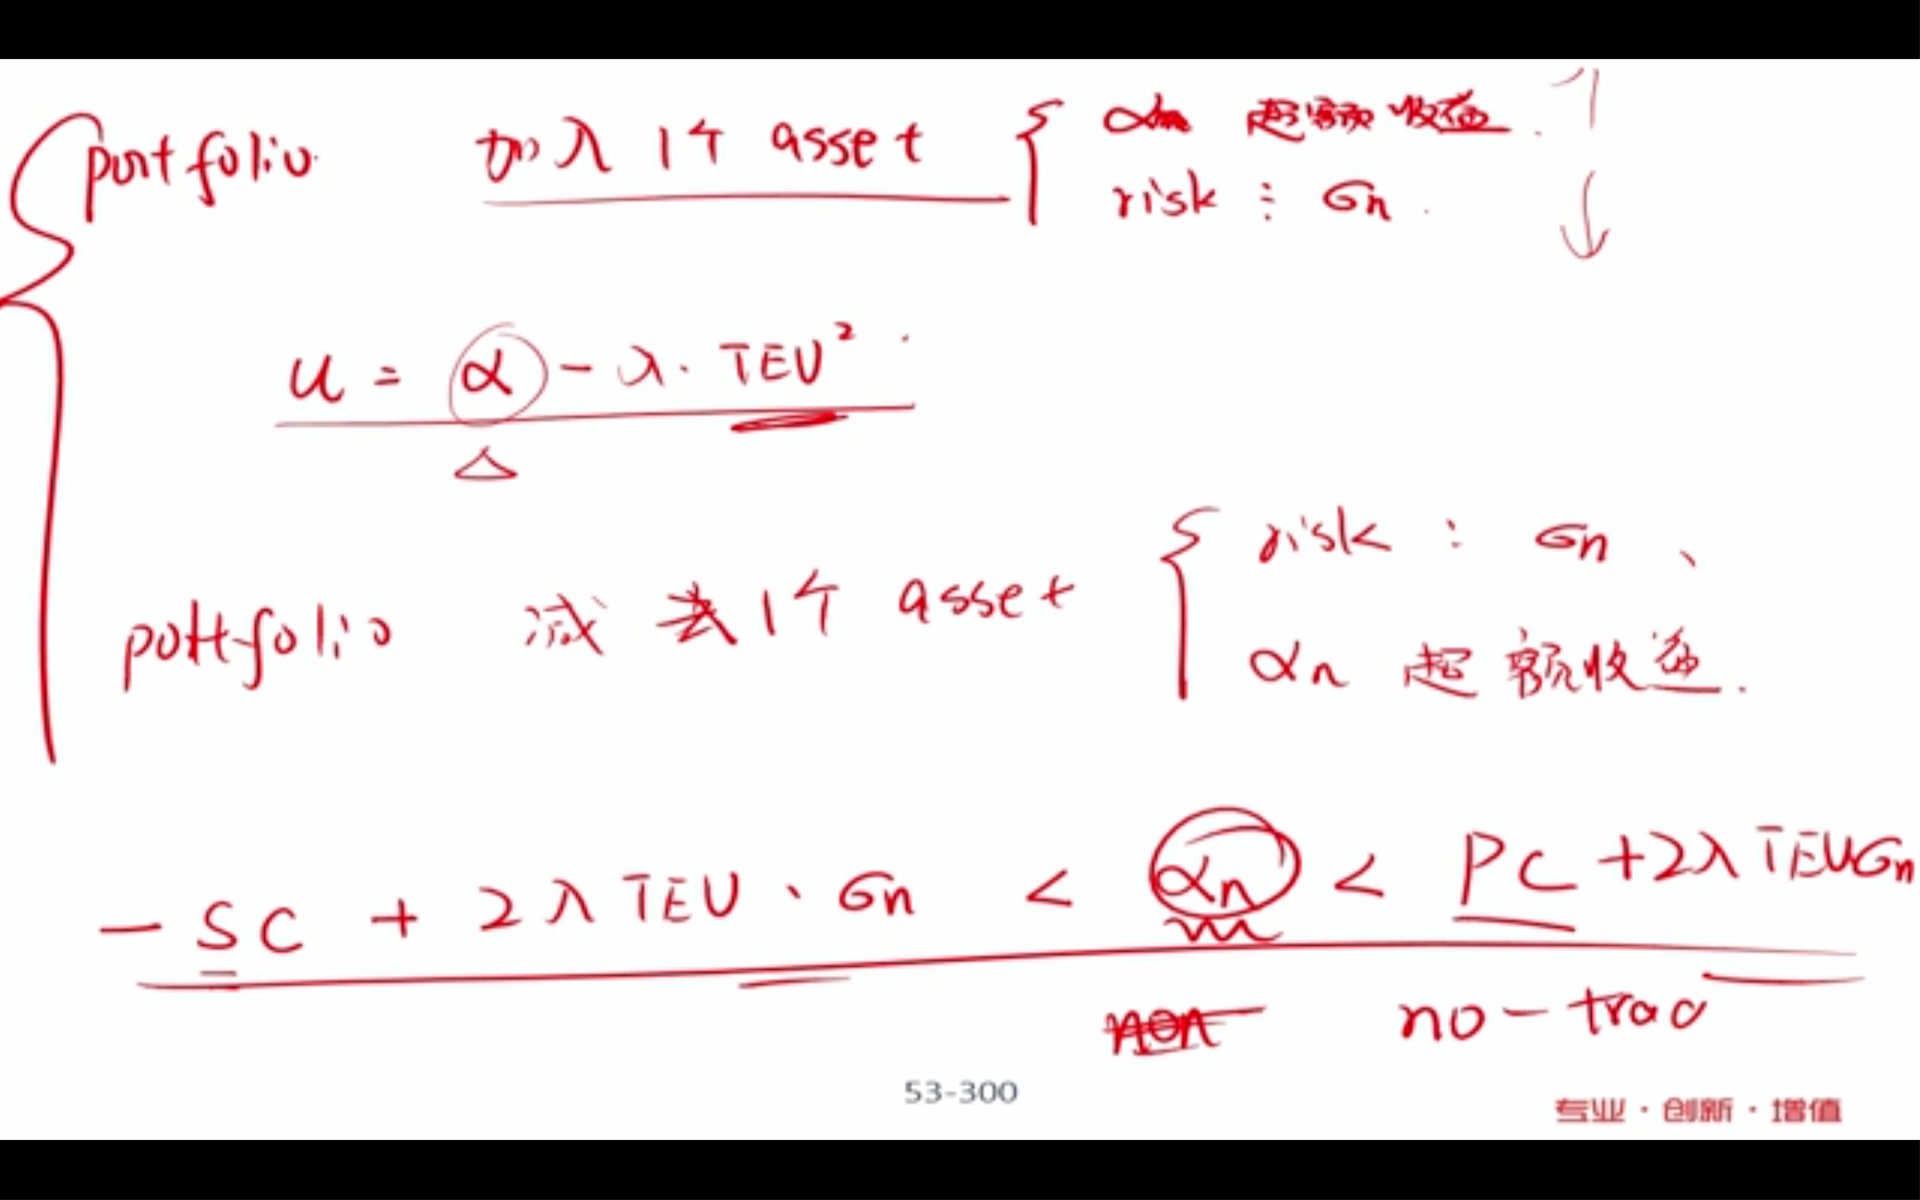 portfolio 加入1个 asset { αn 超额收益.
risk : σn.
u = α - λ. TEV²
△
portfolio 减去1个 asset { risk : σn、
αn 超额收益.
- SC + 2λTEV、σn < αn < PC + 2λTEVσn
non no-trad
53-300
专业·创新·增值